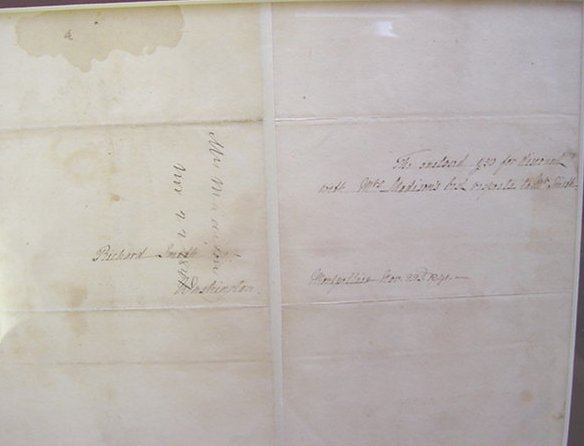 Mrs Madison
Nov 22
Richard Smith
Washington
The enclosed for discount
with Mrs Madison's best respects to Mr Smith
Montpellier Nov. 22d